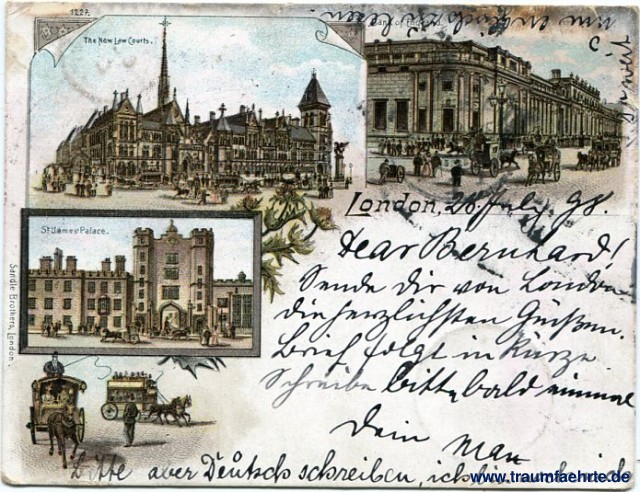 1227.
The New Law Courts.
Bank of England.
mir
C
London, 28. July. 98.
St James Palace.
Dear Bernhard!
Sende Dir von London
die herzlichsten Grüßen.
Brief folgt in Kürze.
Schreibe bitte bald einmal
Dein Max
Bitte aber Deutsch schreiben, ich bin
Sandle Brothers, London.
www.traumfaehrte.de